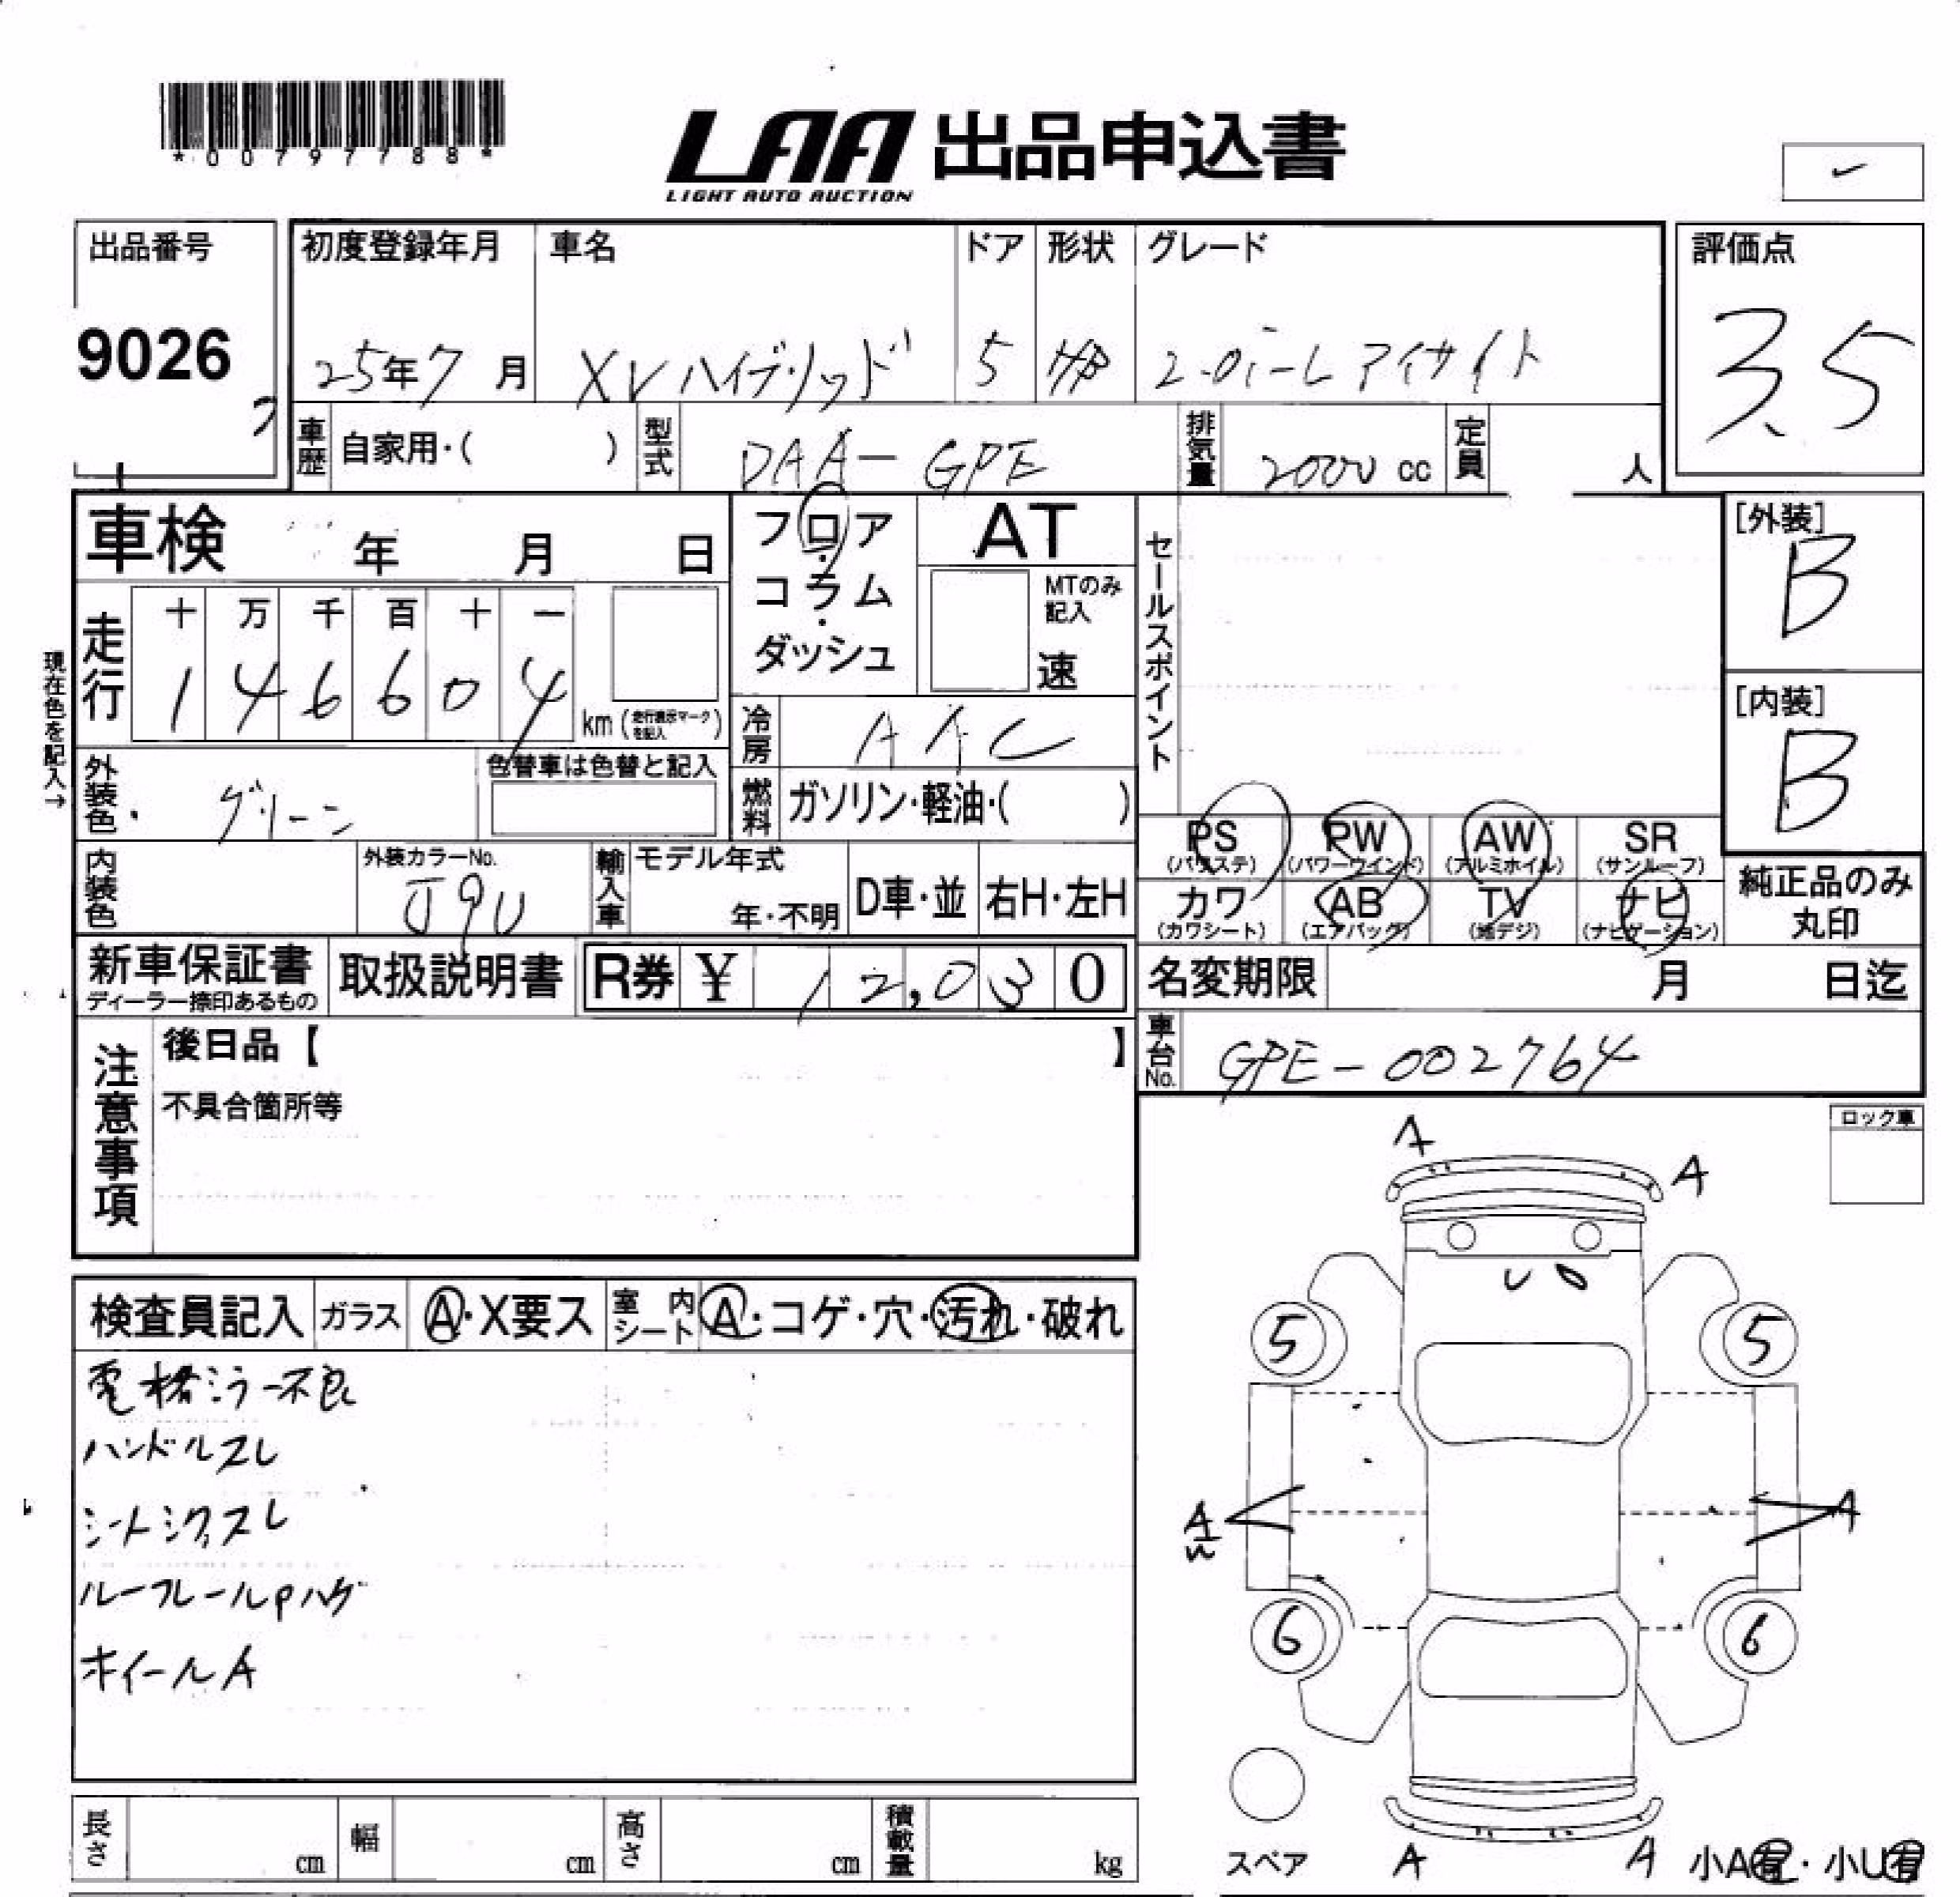 *00797788*
LAA 出品申込書
LIGHT AUTO AUCTION
出品番号
9026
初度登録年月 車名 ドア 形状 グレード
25年7月 XVハイブリッド 5 HB 2.0i-L アイサイト
評価点
3.5
車歴 自家用・( ) 型式 DAA-GPE 排気量 2000 cc 定員 人
車検 年 月 日
フロア・コラム・ダッシュ
AT
MTのみ記入
速
セールスポイント
[外装]
B
[内装]
B
現在色を記入→
走行 十 万 千 百 十 一
1 4 6 6 0 4 km (走行表示マークを記入)
冷房 AAC
外装色 グリーン 色替車は色替と記入
燃料 ガソリン・軽油・( )
PS (パワステ) PW (パワーウインド) AW (アルミホイル) SR (サンルーフ)
カワ (カワシート) AB (エアバッグ) TV (地デジ) ナビ (ナビゲーション)
純正品のみ丸印
内装色 外装カラーNo. J9U 輸入車 モデル年式 年・不明 D車・並 右H・左H
新車保証書 ディーラー捺印あるもの 取扱説明書 R券 ¥ 12,030
名変期限 月 日迄
車台No. GPE-002764
注意事項
後日品【 】
不具合箇所等
ロック車
検査員記入 ガラス A・X要ス 室内シート A・コゲ・穴・汚れ・破れ
電格ミラー不良
ハンドルスレ
シートシワ,スレ
ルーフレールPハゲ
ホイールA
A A
5 5
A A
W
6 6
スペア A A 小A有・小U有
長さ cm 幅 cm 高さ cm 積載量 kg